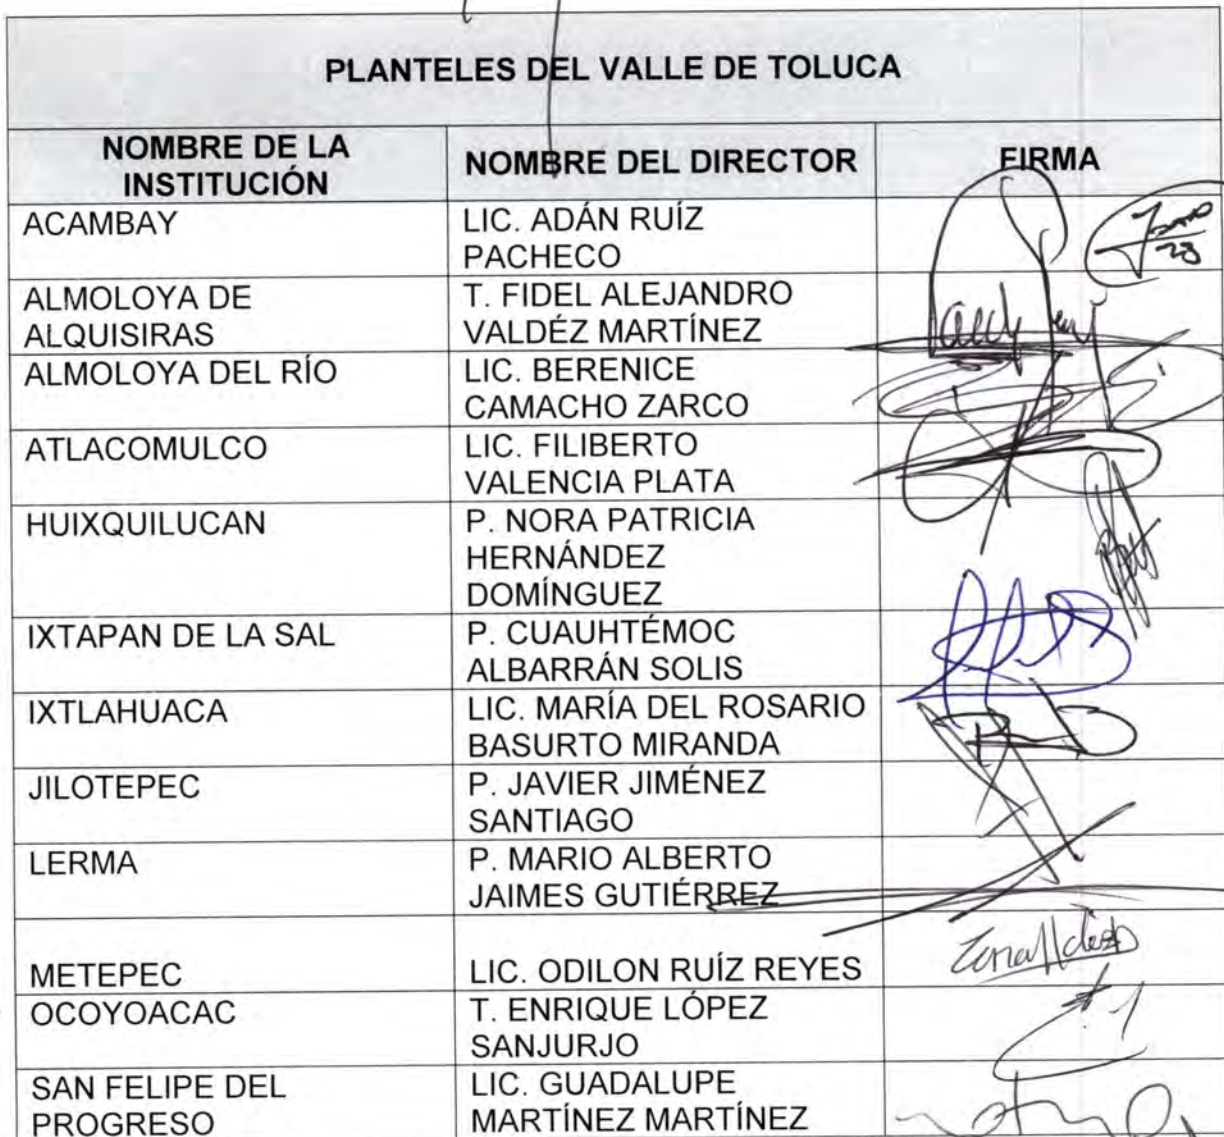 PLANTELES DEL VALLE DE TOLUCA
NOMBRE DE LA
INSTITUCIÓN
NOMBRE DEL DIRECTOR
FIRMA
ACAMBAY
LIC. ADÁN RUÍZ
PACHECO
ALMOLOYA DE
ALQUISIRAS
T. FIDEL ALEJANDRO
VALDÉZ MARTÍNEZ
ALMOLOYA DEL RÍO
LIC. BERENICE
CAMACHO ZARCO
ATLACOMULCO
LIC. FILIBERTO
VALENCIA PLATA
HUIXQUILUCAN
P. NORA PATRICIA
HERNÁNDEZ
DOMÍNGUEZ
IXTAPAN DE LA SAL
P. CUAUHTÉMOC
ALBARRÁN SOLIS
IXTLAHUACA
LIC. MARÍA DEL ROSARIO
BASURTO MIRANDA
JILOTEPEC
P. JAVIER JIMÉNEZ
SANTIAGO
LERMA
P. MARIO ALBERTO
JAIMES GUTIÉRREZ
METEPEC
LIC. ODILON RUÍZ REYES
OCOYOACAC
T. ENRIQUE LÓPEZ
SANJURJO
SAN FELIPE DEL
PROGRESO
LIC. GUADALUPE
MARTÍNEZ MARTÍNEZ